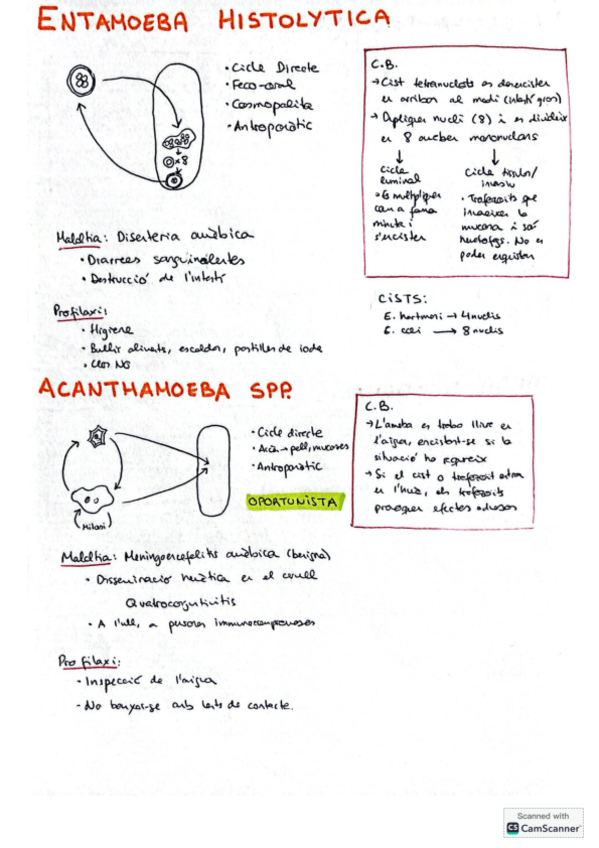 ENTAMOEBA HISTOLYTICA
• Cicle Directe
• Feco-oral
• Cosmopolita
• Antroponòtic
C.B.
→ Cist tetranucleats es desencisten
en arribar al medi (intestí gros)
→ Dupliquen nucli (8) i es divideix
en 8 amebes mononuclears
Cicle
luminal
• Es multipliquen
com a forma
minuta i
s'encisten
Cicle tissular/
invasiu
• Trofozoïts que
invaeixen la
mucosa i són
hematofags. No es
poden enquistar
x8
Malaltia: Disenteria amèbica
• Diarrees sanguinolentes
• Destrucció de l'intestí
Profilaxi:
• Higiene
• Bullir aliments, escaldar, pastilles de iode
• Clor NO
CISTS:
E. hartmani → 4 nuclis
E. coli → 8 nuclis
ACANTHAMOEBA SPP.
• Cicle directe
• Acció → pell, mucoses
• Antroponòtic
OPORTUNISTA
Mitosi
C.B.
→ L'ameba es troba lliure en
l'aigua, encistant-se si la
situació ho requereix
→ Si el cist o trofozoït entra
en l'hoste, els trofozoïts
provoquen efectes adversos
Malaltia: Meningoencefelitis amèbica (benigna)
• Disseminació hemàtica en el cervell
Queratoconjuntivitis
• A l'ull, a persones immunocompromeses
Profilaxi:
• Inspecció de l'aigua
• No banyar-se amb lents de contacte.
Scanned with
CS CamScanner